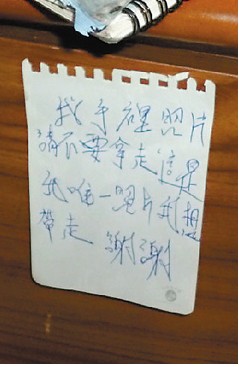 我手裡照片
請不要拿走這是
我唯一照片我想
帶走 謝謝